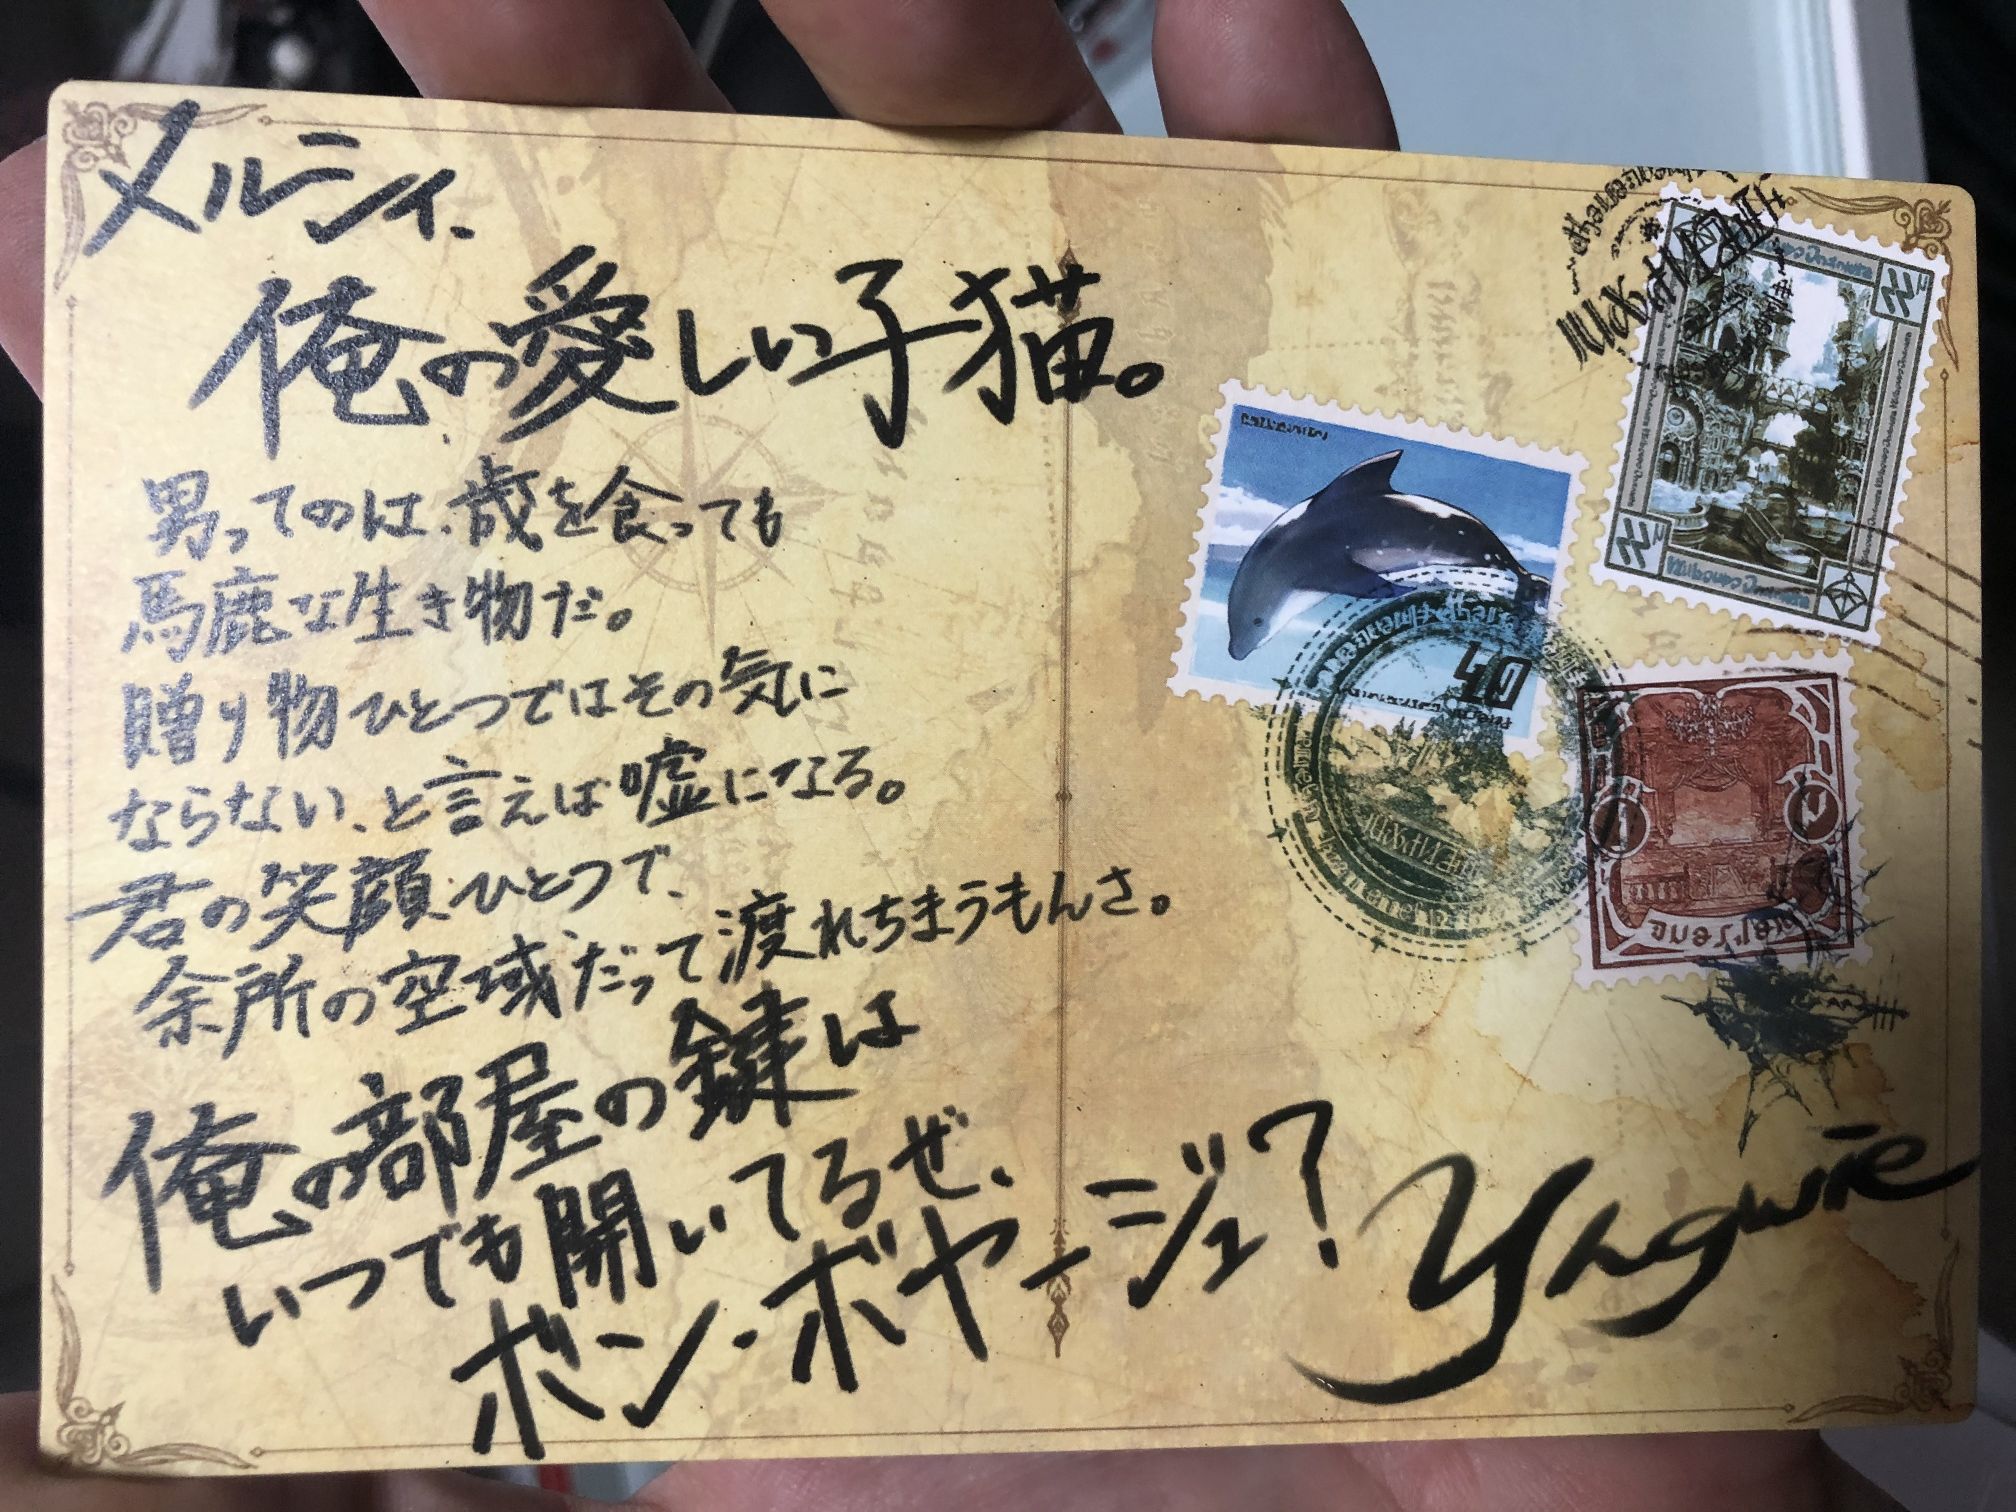 メルシィ、
俺の愛しい子猫。
男ってのは、歳を食っても
馬鹿な生き物だ。
贈り物ひとつではその気に
ならない、と言えば嘘になる。
君の笑顔ひとつで、
余所の空域だって渡れちまうもんさ。
俺の部屋の鍵は
いつでも開いてるぜ、
ボン・ボヤージュ?
Yngwie